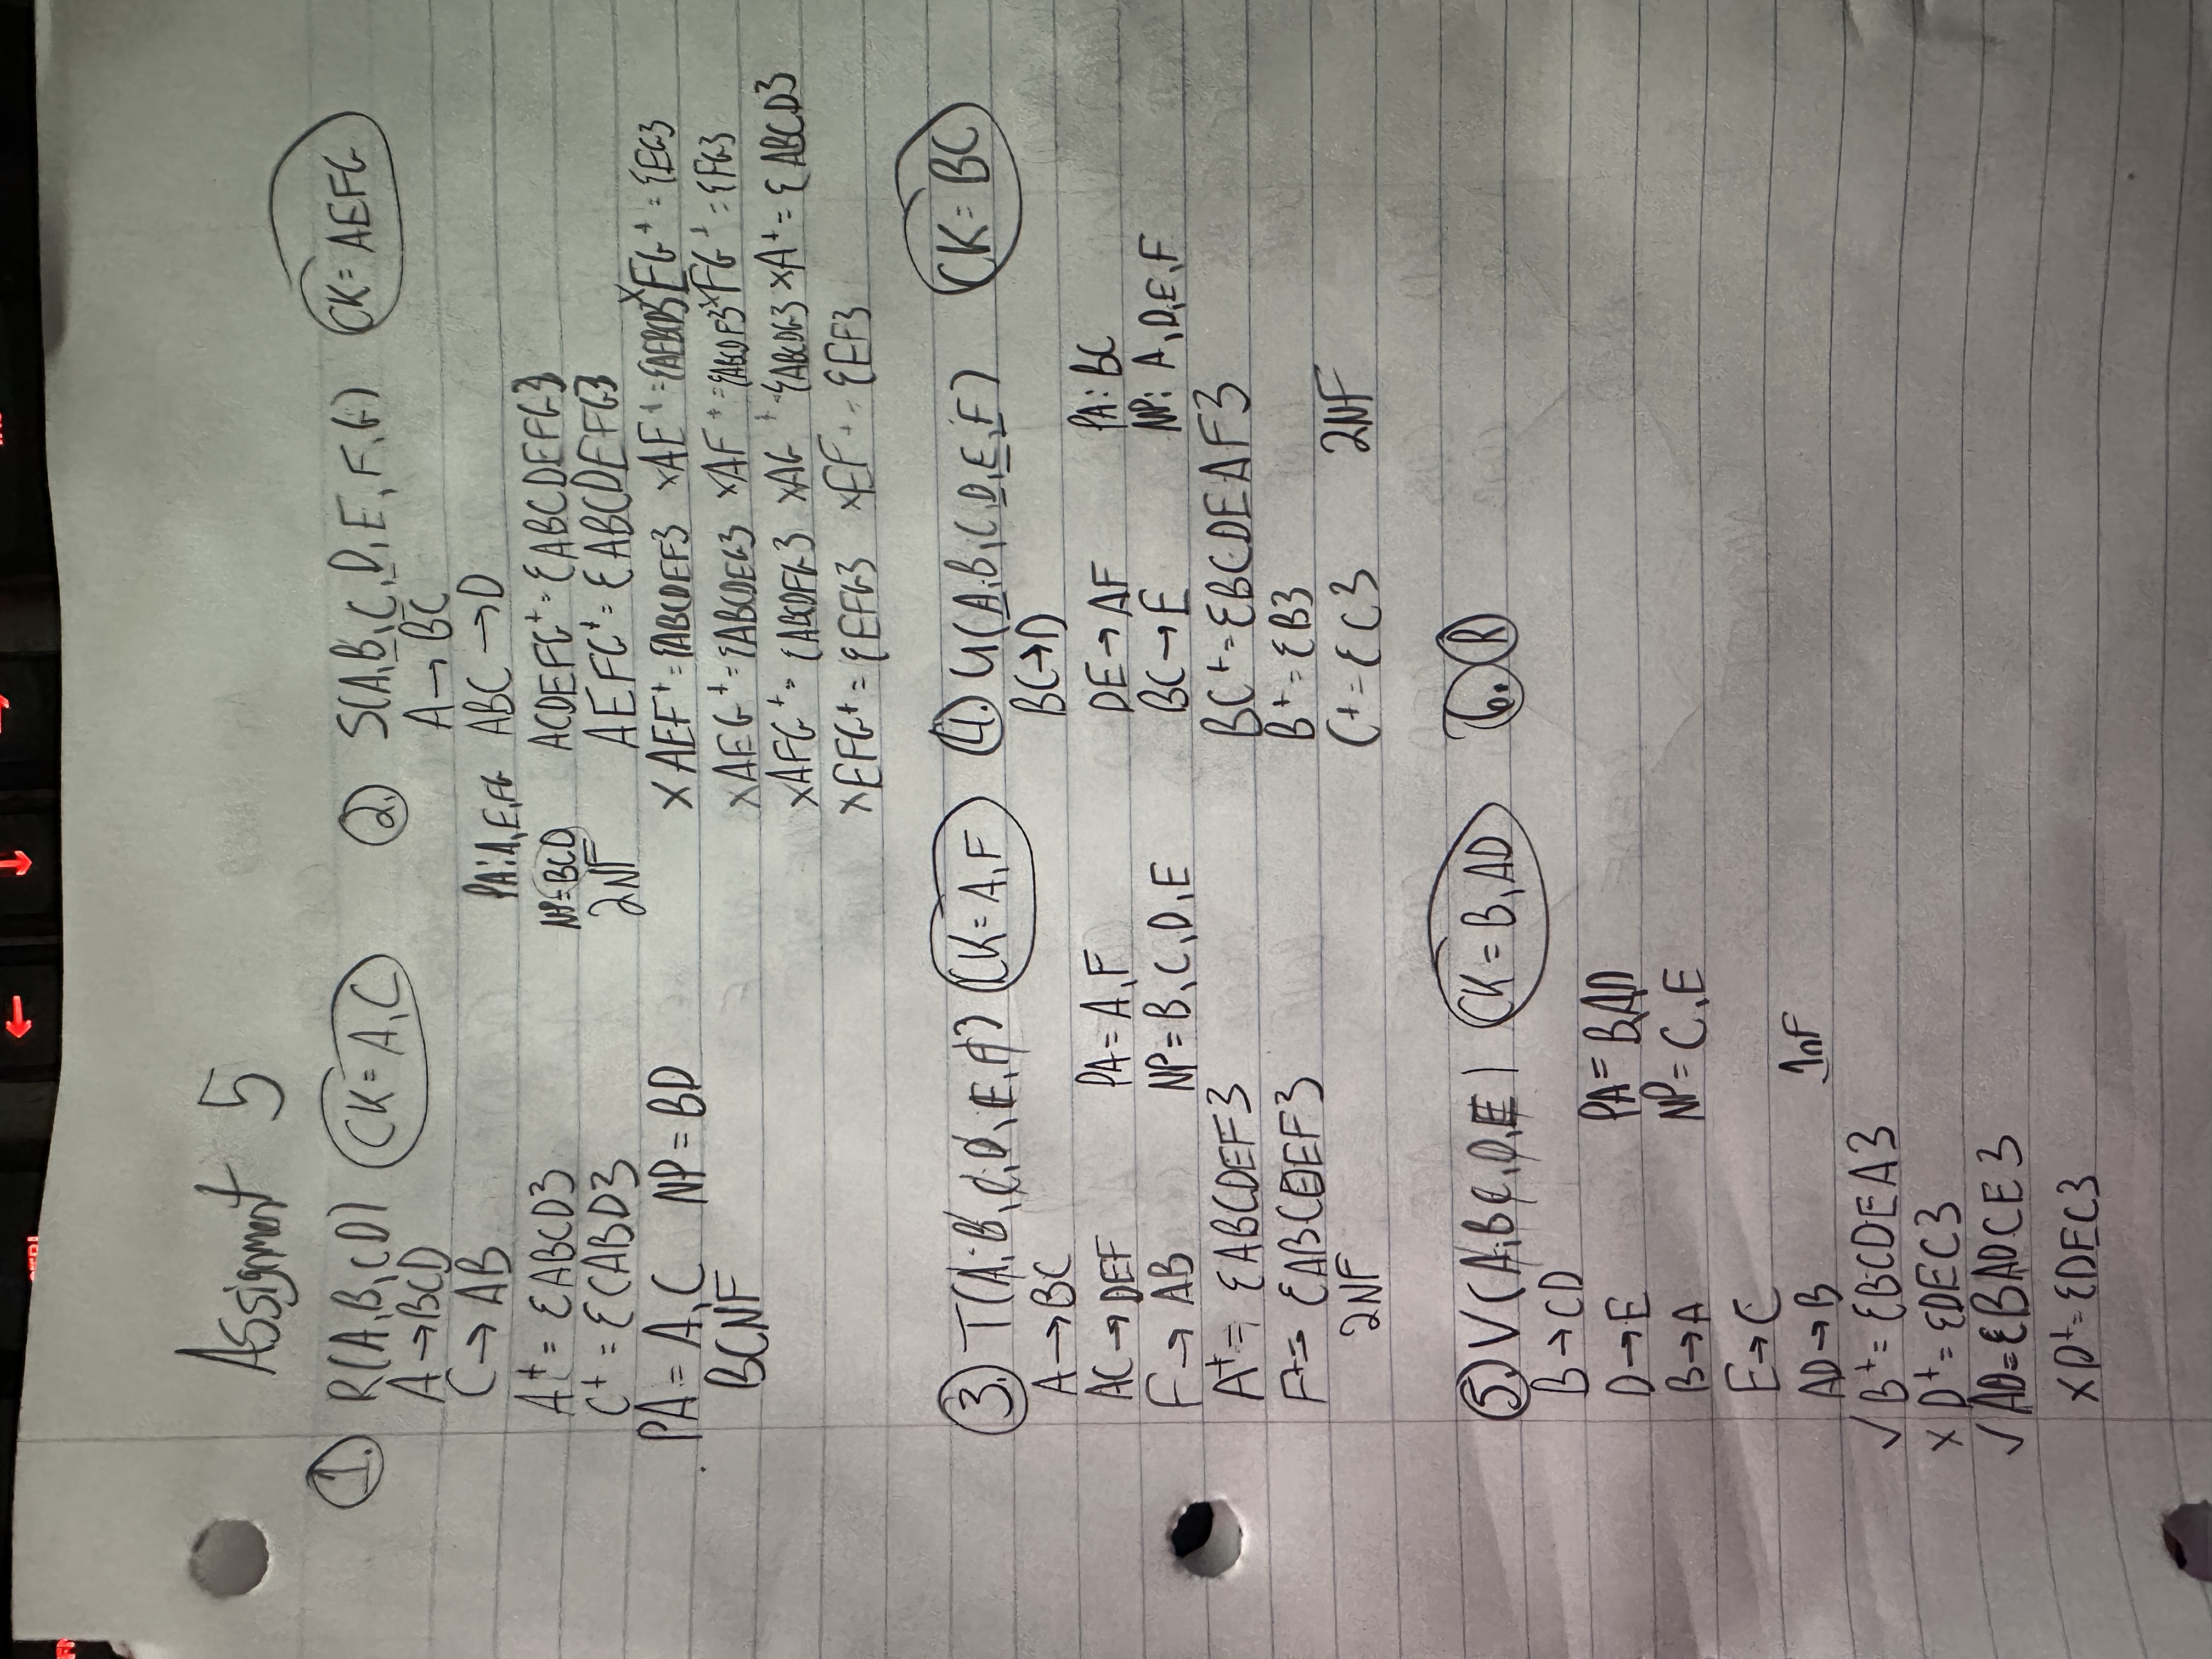 Assignment 5
1. R(A,B,CD) CK = A,C
A → BCD
C → AB
A+ = {ABCD}
C+ = {CABD}
PA = A,C NP = BD
BCNF
2. S(A,B,C,D,E,F,G) CK = AEFG
A → BC
PA: A,E,FG ABC → D
NP = BCD ACDEFG+ = {ABCDEFG}
2NF AEFG+ = {ABCDEFG}
X AEF+ = {ABCDEF} X AE+ = {AEBCD} X EG+ = {EG}
X AEG+ = {ABCDEG} X AF+ = {ABCDF} X FG+ = {FG}
X AFG+ = {ABCDFG} X AG+ = {ABCDG} X A+ = {ABCD}
X EFG+ = {EFG} X EF+ = {EF}
3. T(A,B,C,D,E,F) CK = A,F
A → BC
AC → DEF PA = A,F
F → AB NP = B,C,D,E
A+ = {ABCDEF}
F+ = {ABCDEF}
2NF
4. U(A,B,C,D,E,F) CK = BC
BC → D
DE → AF PA: BC
BC → E NP: A,D,E,F
BC+ = {BCDEAF}
B+ = {B}
C+ = {C} 2NF
5. V(A,B,C,D,E) CK = B,AD
B → CD
D → E PA = B,AD
B → A NP = C,E
E → C
AD → B 1nF
✓ B+ = {BCDEA}
X D+ = {DEC}
✓ AD = {BADCE}
X D+ = {DEC}
6. R